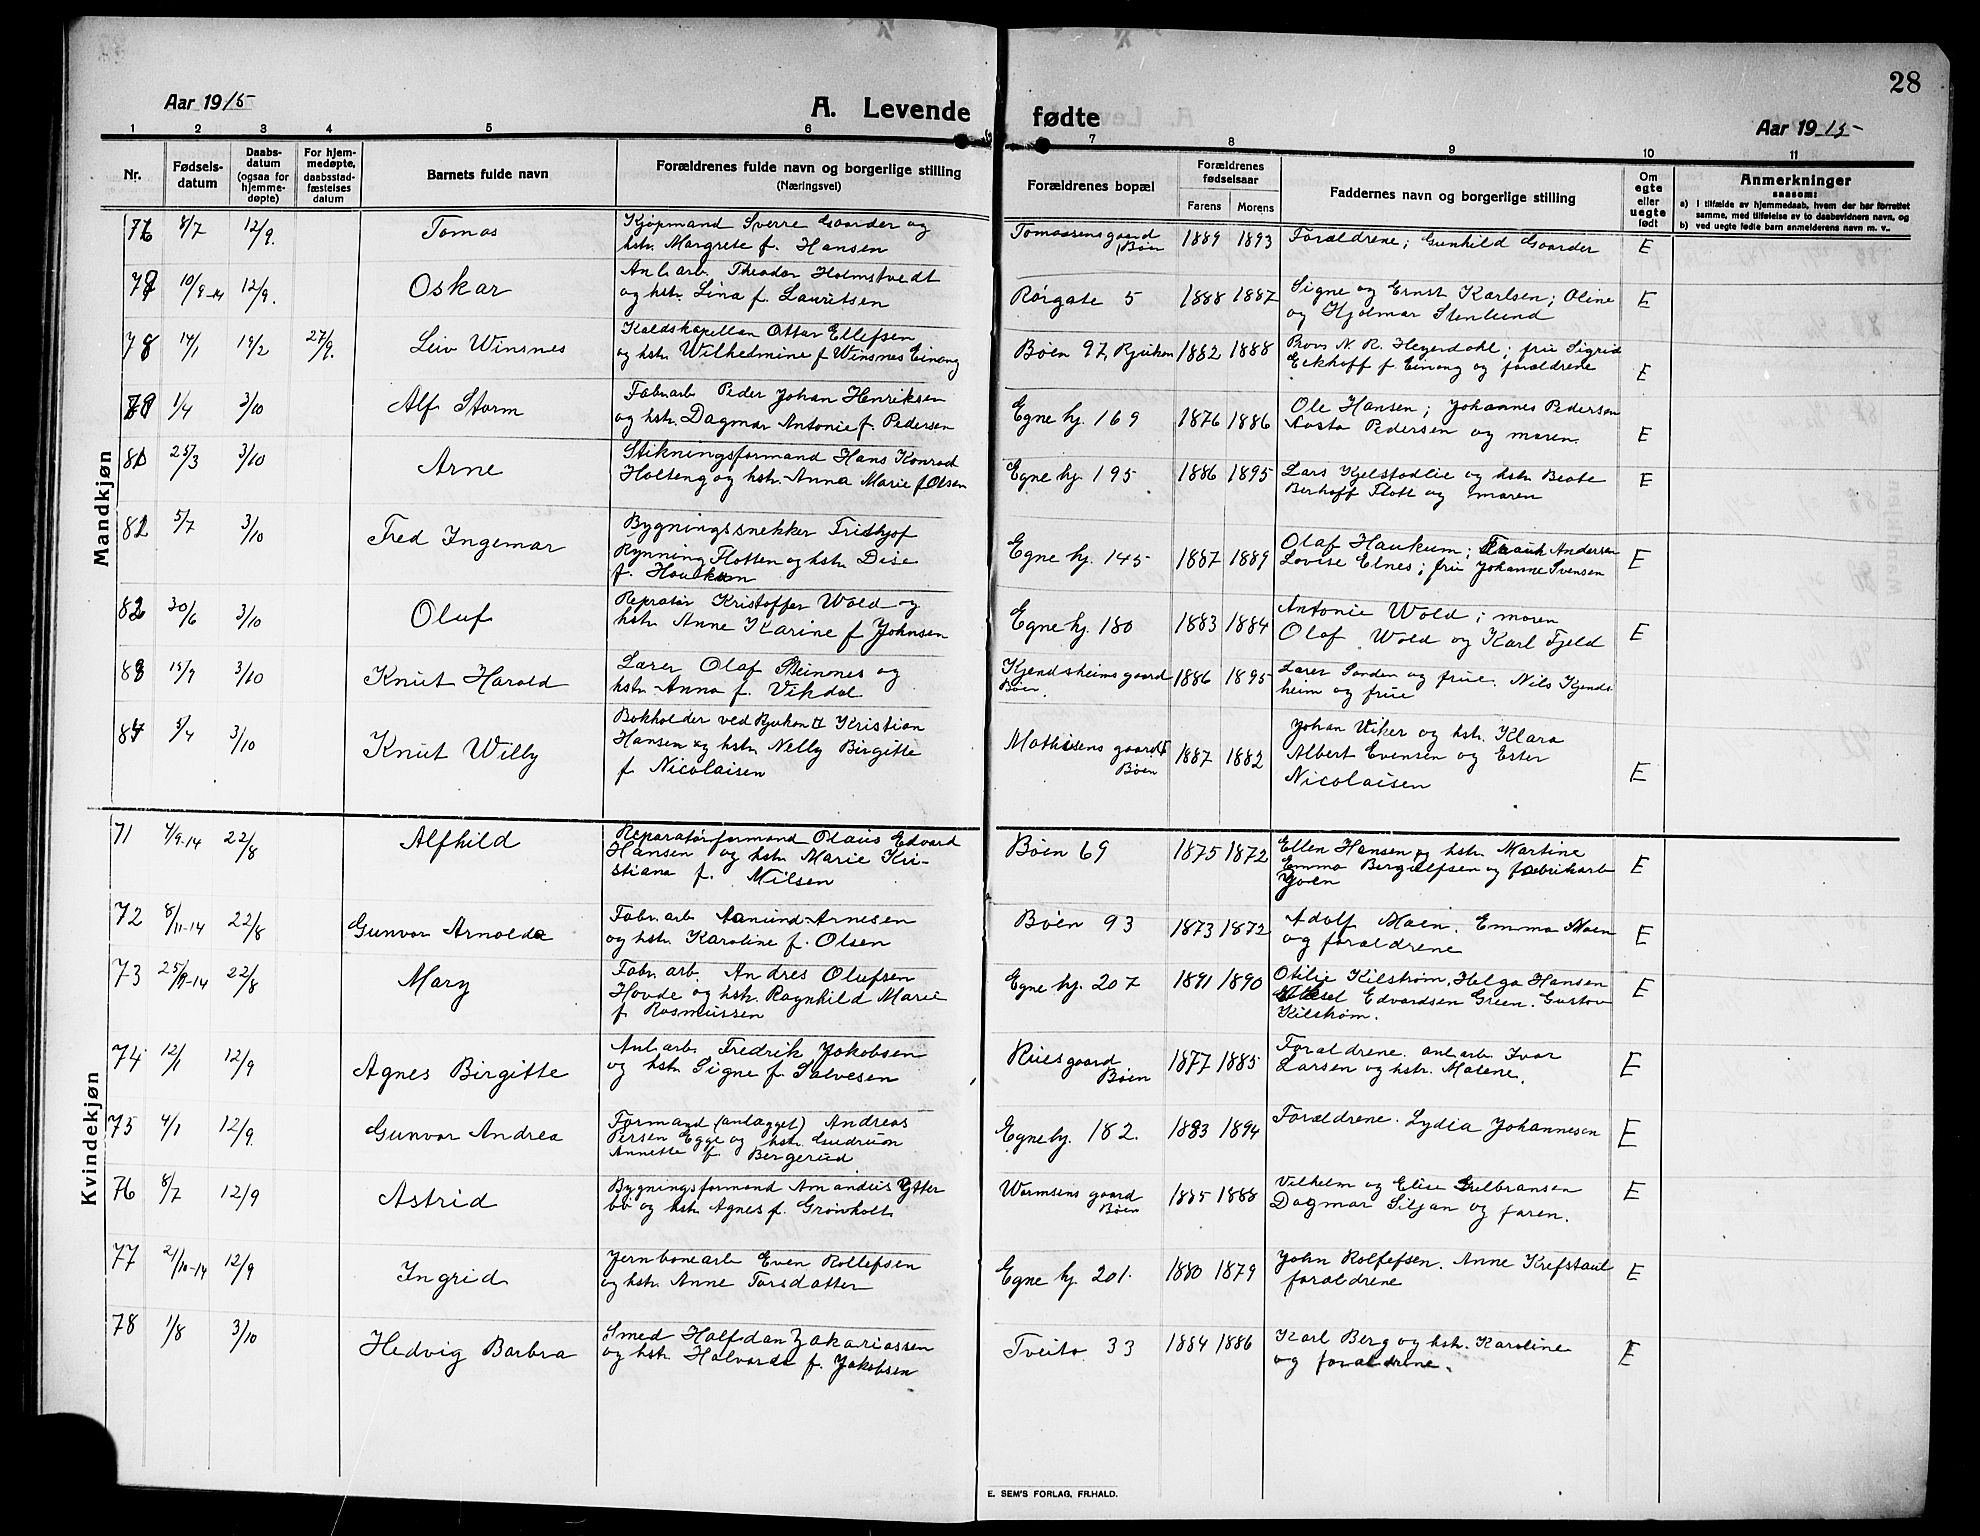 28
Aar 1915
A. Levende fødte
Aar 1915
1 2 3 4 5 6 7 8 9 10 11
Nr.
Fødsels-
datum
Daabs-
datum
(ogsaa for
hjemme-
døpte)
For hjem-
medøpte,
daabsstad-
fæstelses
datum
Barnets fulde navn
Forældrenes fulde navn og borgerlige stilling
(Næringsvei)
Forældrenes bopæl
Forældrenes
fødselsaar
Farens Morens
Faddernes navn og borgerlige stilling
Om
egte
eller
uegte
født
Anmerkninger
saasom:
a) I tilfælde av hjemmedaab, hvem der har forrettet
samme, med tilføielse av to daabsvidners navn, og
b) ved uegte fødte barn anmelderens navn m. v.
Mandkjøn
76 8/7 12/9. Tomas
Kjøpmand Sverre Gaarder og
hstr. Margrete f. Hansen
Tomassensgaard
Bøen
1889 1893 Forældrene; Gunhild Gaarder E
77 10/9-14 12/9. Oskar
Anl. arb. Theodor Holmstvedt
og hstr. Lina f. Lauritsen
Rørgate 5 1888 1887
Signe og Ernst Karlsen; Oline
og Hjalmar Stenlund
E
78 14/1 19/2 27/9. Leiv Winsnes
Kaldskapellan Ottar Ellefsen
og hstr. Wilhelmine f Winsnes Einong
Bøen 97, Rjukan 1882 1888
Prov N. R. Heyerdahl; fru Sigrid
Eckhoff f. Einong og forældrene
E
79 1/4 3/10 Alf Storm
Fabr.arb Peder Johan Henriksen
og hstr. Dagmar Antonie f. Pedersen
Egne hj. 169 1876 1886
Ole Hansen; Johannes Pedersen
Aasta Pedersen og moren.
E
80 25/3 3/10 Arne
Stikningsformand Hans Konrad
Holteng og hstr. Anna Marie f Olsen
Egne hj. 195 1886 1895
Lars Kjelstadlie og hstr Beate
Berhoff Flott og moren
E
81 5/7 3/10 Fred Ingemar
Bygningssnekker Fridhjof
Rynning Flotten og hstr. Dise
f. Haukum
Egne hj. 145 1887 1889
Olaf Haukum; Andersen
Lovise Elnes; fru Johanne Svensen
E
82 30/6 3/10 Oluf
Repratør Kristoffer Wold og
hstr. Anne Karine f Johnsen
Egne hj. 180 1883 1884
Antonie Wold; moren
Olaf Wold og Karl Fjeld
E
83 15/9 3/10 Knut Harald
Lærer Olaf Steinnes og
hstr. Anna f. Vikdal
Kjendsheimsgaard
Bøen.
1886 1895
Lærer Sanden og frue. Nils Kjends
heim og frue
84 5/4 3/10 Knut Willy
Bokholder ved Rjukan II Kristian
Hansen og hstr. Nelly Birgitte
f. Nicolaisen
Mathisens gaard
Bøen
1887 1882
Johan Viker og hstr. Klara
Albert Evensen og Ester
Nicolaisen
E
Kvindekjøn
71 4/9-14 22/8 Alfhild
Reparatørformand Olaus Edvard
Hansen og hstr. Marie Kri-
stiana f. Nilsen
Bøen 69 1875 1872
Ellen Hansen og hstr. Martine
Emma Bergulfsen og fabrikarb
Joen
E
72 8/11-14 22/8 Gunvor Arnolda
Fabr. arb Amund Arnesen
og hstr. Karoline f. Olsen
Bøen 93 1873 1872
Adolf Moen. Emma Moen
og forældrene
E
73 25/9-14 22/8 Mary
Fabr. arb. Andres Olufsen
Hovde og hstr. Ragnhild Marie
f. Rasmussen
Egne hj. 207 1891 1890
Otilie Kilstrøm, Helga Hansen
Edvardsen Green. Gustov
Kilstrøm.
E
74 12/1 12/9 Agnes Birgitte
Anl. arb. Fredrik Jakobsen
og hstr. Signe f. Salvesen
Ruesgaard
Bøen
1877 1885
Forældrene. anl. arb. Ivar
Larsen og hstr. Matene.
E
75 4/1 12/9. Gunvor Andrea
Formand (anlægget) Andreas
Persen Egge og hstr. Gudrun
Annette f Bergerud
Egne hj. 182. 1883 1894
Forældrene. Lydia Johannesen
E
76 8/7 12/9 Astrid
Bygningsformand Amandus Ytter
bø og hstr Agnes f. Grønholt.
Wormsens gaard
Bøen
1885 1888
Vilhelm og Elise Gulbransen
Dagmar Siljan og faren.
E
77 2/10-14 12/9 Ingrid
Jernbanearb Even Rollefsen
og hstr. Anne Torsdatter
Egne hj. 201. 1880 1879
John Rolfefsen. Anne Krefstaul
forældrene
E
78 1/8 3/10 Hedvig Barbra
Smed Halfdan Zakariassen
og hstr. Halvarda f. Jakobsen
Tveito 33 1884 1886
Karl Berg og hstr. Karoline
og forældrene.
E
E. SEM'S FORLAG, FR.HALD.